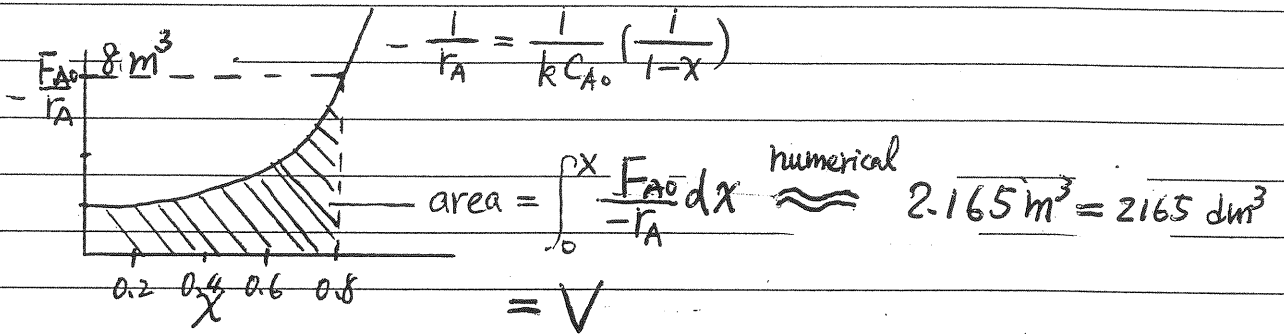 8 m³
- F_A0 / r_A
- 1/r_A = 1/(k C_A0) (1/(1-X))
area = ∫₀^X F_A0/(-r_A) dX ≈ numerical 2.165 m³ = 2165 dm³
0.2 0.4 0.6 0.8
X
= V